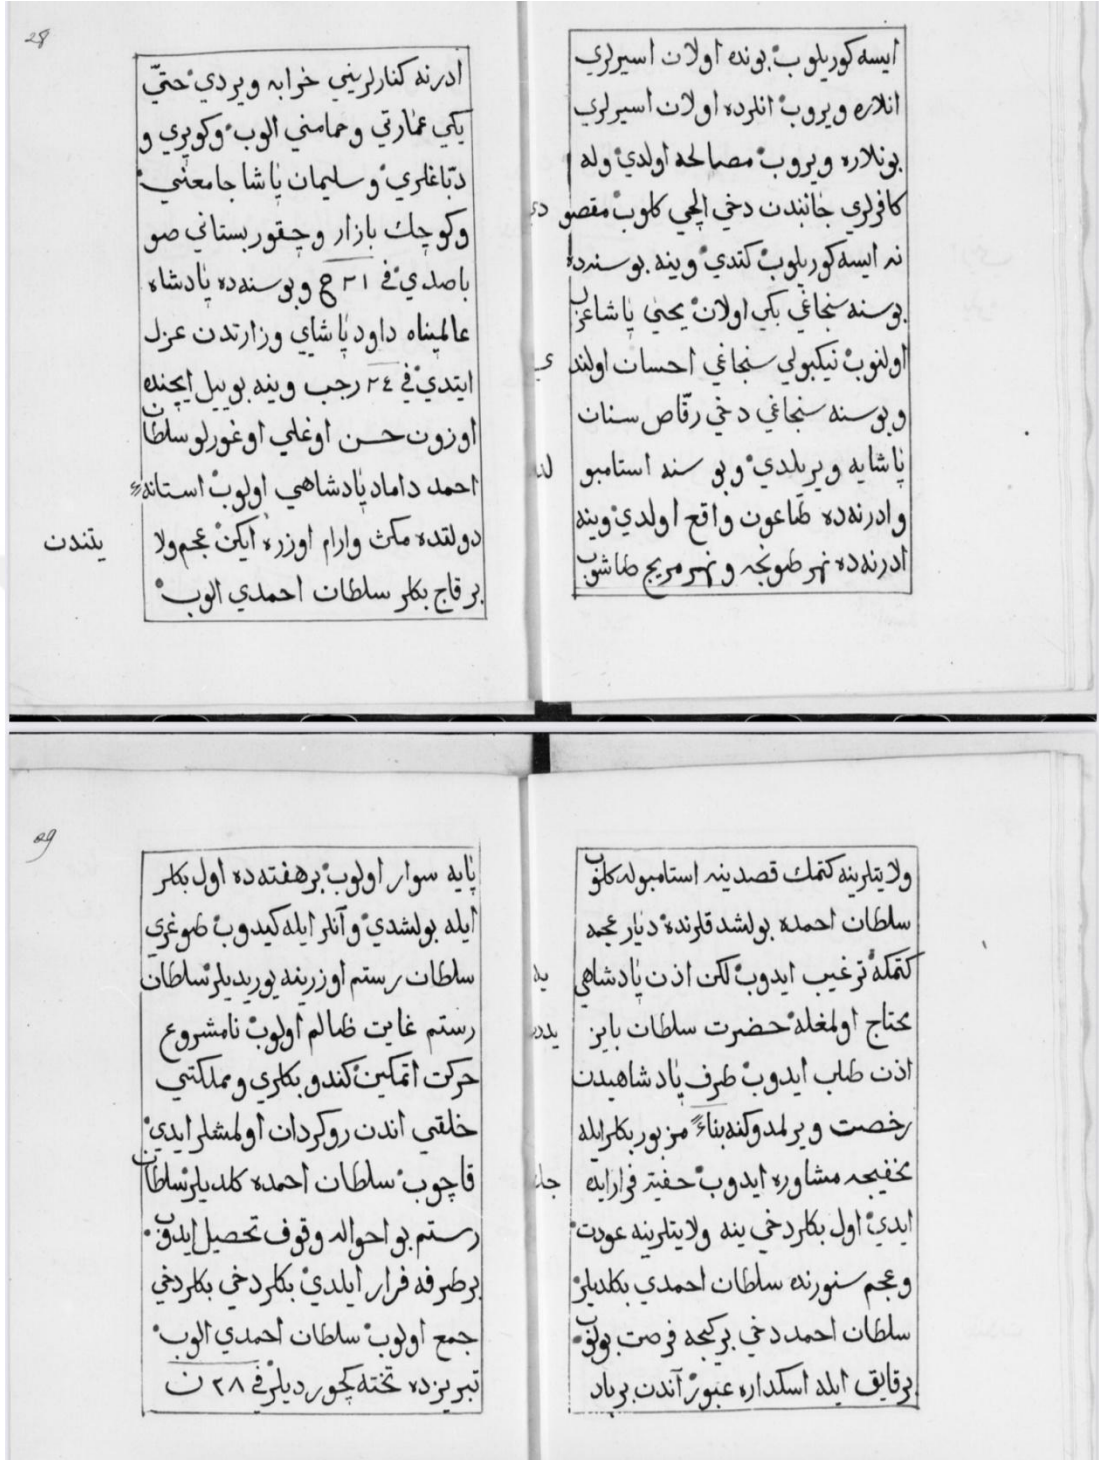 ايسه كوريلوب بونده اولان اسيرلري
انلاره ويروب انلرده اولان اسيرلري
بونلاره ويروب مصالحه اولدي وله
كافرلري جانبندن دخي ايلچي كلوب مقصودي
نه ايسه كوريلوب كتدي وينه بوسنه ده
بوسنه سنجاغي بكي اولان يحيي پاشا عزل
اولنوب نيكبولي سنجاغي احسان اولندي
وبوسنه سنجاغي دخي رقّاص سنان
پاشايه ويريلدي وبو سنه استامبولده
وادرنه ده طاعون واقع اولدي وينه
ادرنه ده نهر طونجه و نهر مريج طاشوب
28
ادرنه كنارلريني خرابه ويردي حتّي
يكي عمارتي وحمامني الوب وكوپري و
دبّاغلري و سليمان پاشا جامعني
وكوچك بازار وچقور بستاني صو
باصدي في ٢١ ج وبو سنه ده پادشاه
عالمپناه داود پاشاي وزارتدن عزل
ايتدي في ٢٤ رجب وينه بو ييل ايچنده
اوزون حسن اوغلي اوغورلو سلطان
احمد داماد پادشاهي اولوب استانهء
دولتده مكث وارام اوزره ايكن عجم ولايتندن
برقاچ بكلر سلطان احمدي الوب
ولايتلرينه كتمك قصدينه استامبوله كلوب
سلطان احمده بولشدقلرنده ديار عجمه
كتمكه ترغيب ايدوب لكن اذن پادشاهي يه
محتاج اولمغله حضرت سلطان بايزيددن
اذن طلب ايدوب طرف پادشاهيدن
رخصت ويرلمدوكنه بناءً مزبور بكلر ايله
خفيجه مشاوره ايدوب خفيةً فرار ايده جك
ايدي اول بكلر دخي ينه ولايتلرينه عودت
وعجم سنورنده سلطان احمدي بكلديلر
سلطان احمد دخي بر كيجه فرصت بولوب
بر قايق ايله اسكداره عبور آندن بر باد
29
پايه سوار اولوب بر هفته ده اول بكلر
ايله بولشدي و آنلر ايله كيدوب طوغري
سلطان رستم اوزرينه يوريديلر سلطان
رستم غايت ظالم اولوب نامشروع
حركت اتمكين كندو بكلري ومملكتي
خلقي اندن روكردان اولمشلر ايدي
قاچوب سلطان احمده كلديلر سلطان
رستم بو احواله وقوف تحصيل ايدوب
بر طرفه فرار ايلدي بكلر دخي بكلر دخي
جمع اولوب سلطان احمدي الوب
تبريزده تخته كچورديلر في ٢٨ ن